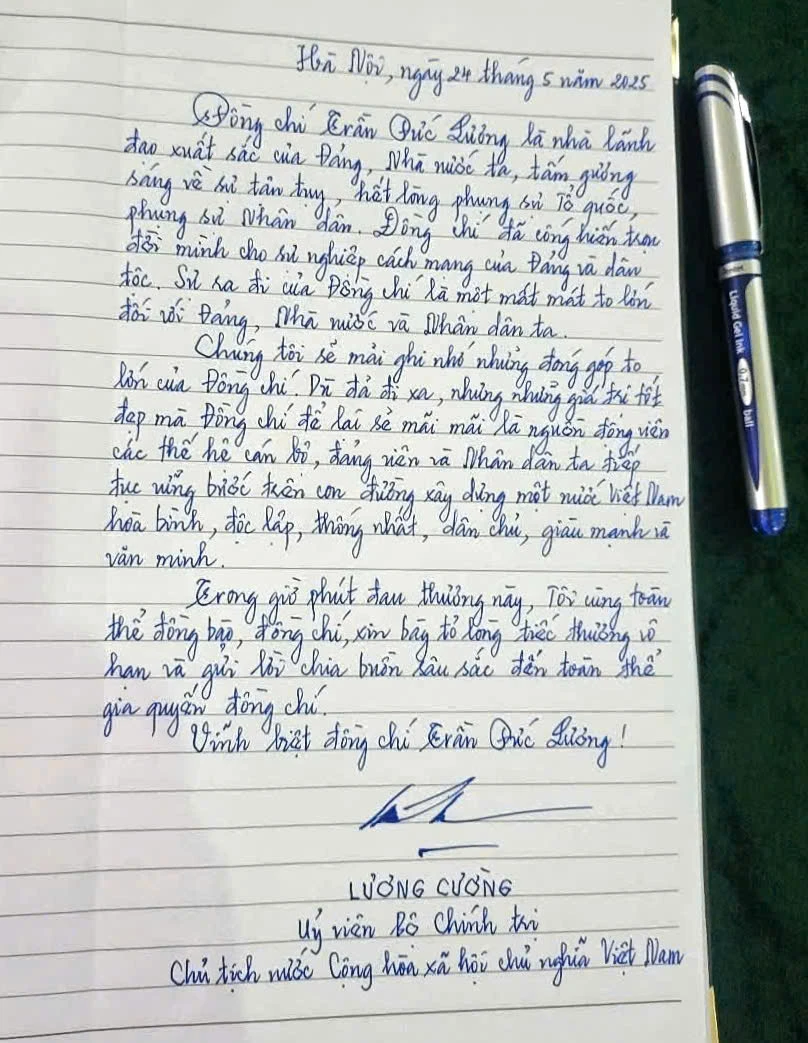 Hà Nội, ngày 24 tháng 5 năm 2025
Đồng chí Trần Đức Lương là nhà lãnh
đạo xuất sắc của Đảng, Nhà nước ta, tấm gương
sáng về sự tận tụy, hết lòng phụng sự Tổ quốc,
phụng sự Nhân dân. Đồng chí đã cống hiến trọn
đời mình cho sự nghiệp cách mạng của Đảng và dân
tộc. Sự ra đi của Đồng chí là một mất mát to lớn
đối với Đảng, Nhà nước và Nhân dân ta.
Chúng tôi sẽ mãi ghi nhớ những đóng góp to
lớn của Đồng chí. Dù đã đi xa, nhưng những giá trị tốt
đẹp mà Đồng chí để lại sẽ mãi mãi là nguồn động viên
các thế hệ cán bộ, đảng viên và Nhân dân ta tiếp
tục vững bước trên con đường xây dựng một nước Việt Nam
hòa bình, độc lập, thống nhất, dân chủ, giàu mạnh và
văn minh.
Trong giờ phút đau thương này, Tôi cùng toàn
thể đồng bào, đồng chí, xin bày tỏ lòng tiếc thương vô
hạn và gửi lời chia buồn sâu sắc đến toàn thể
gia quyến đồng chí.
Vĩnh biệt đồng chí Trần Đức Lương!
LƯƠNG CƯỜNG
Uỷ viên Bộ Chính trị
Chủ tịch nước Cộng hòa xã hội chủ nghĩa Việt Nam
Liquid Gel Ink 0.7mm ball